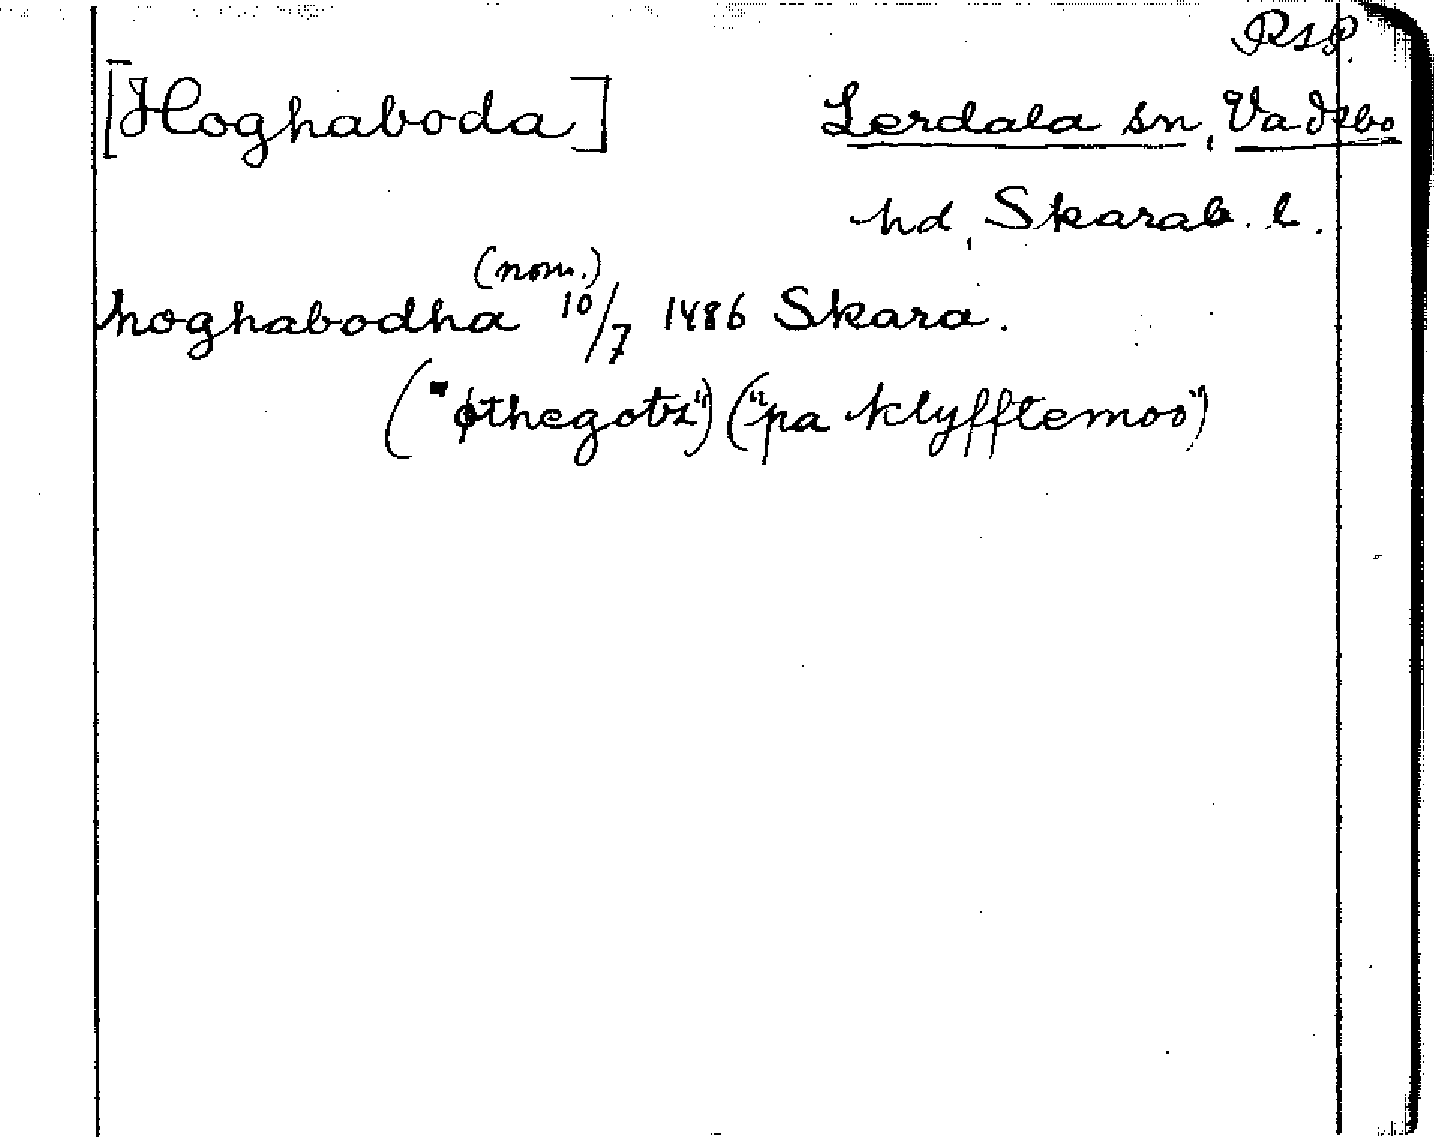 RSP.
[Hoghaboda] Lerdala sn, Vadsbo
hd, Skarab. l.
(nom.)
hoghabodha 10/7 1486 Skara.
("øthegotz") ("pa klyfftemoo")